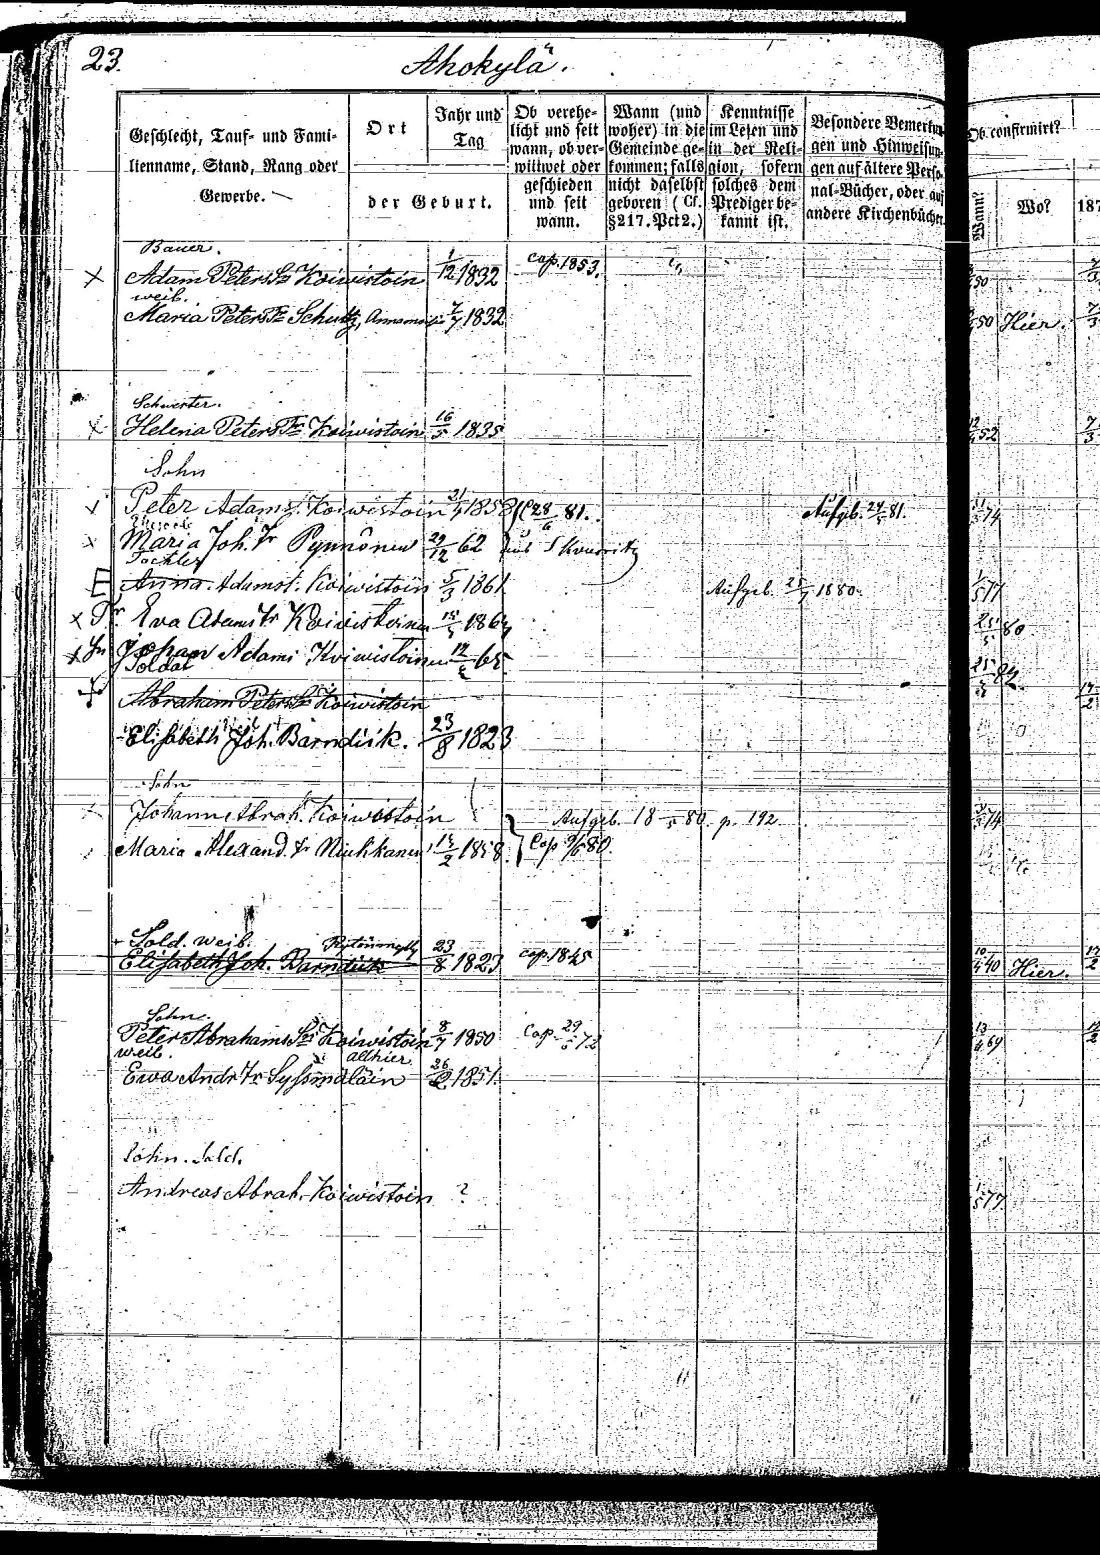 23.
Ahokylä.
Geschlecht, Tauf- und Fami-
lienname, Stand, Rang oder
Gewerbe.
Ort
der Geburt.
Jahr und
Tag
Ob verehe-
licht und seit
wann, ob ver-
wittwet oder
geschieden
und seit
wann.
Wann (und
woher) in die
Gemeinde ge-
kommen; falls
nicht daselbst
geboren (Cf.
§217. Pct 2.)
Kenntnisse
im Lesen und
in der Reli-
gion, sofern
solches dem
Prediger be-
kannt ist.
Besondere Bemerkun-
gen und Hinweisun-
gen auf ältere Perso-
nal-Bücher, oder auf
andere Kirchenbücher.
Ob confirmirt?
Wann?
Wo?
187
Bauer.
Adam Peters Sn Koiwistoin 1/12 1832 cap. 1853.
weib.
Maria Peters Tr Schultz, 7/7 1832 50 Hier.
Schwester.
Helena Peters Tr Koiwistoin 16/5 1835 52
Sohn
Peter Adams S. Koiwistoin 21/7 1858 28/6 81. Aufgeb. 24/5 81. 74
Maria Joh. Tr Pynnönen 29/12 62
Tochter
Anna Adamst. Koiwistoin 5/3 1861 Aufgeb. 25/7 1880. 1/5 77
Tr Eva Adams Tr Koiwistoinen 25/5 80
Sn Johan Adams Koiwistoinen 65
Soldat
Abraham Peters Sn Koiwistoin
Elisabeth Joh. Barndick. 23/8 1823
Sohn
Johann Abrah. Koiwostoin Aufgeb. 18/5 80. p. 192. 74
Maria Alexand. Tr Niukkanen 1858. Cap. 80.
Sold. weib.
Elisabeth Joh. Barndick 23/8 1823 cap. 1845 40 Hier.
Sohn.
Peter Abrahams Sn Koiwistoin 8/7 1850 Cap. 29/5 72 69
weib. althier
Ewa Andr Tr Syssmäläin 1851.
Sohn. Sold.
Andreas Abrah. Koiwistoin ? 1/5 77